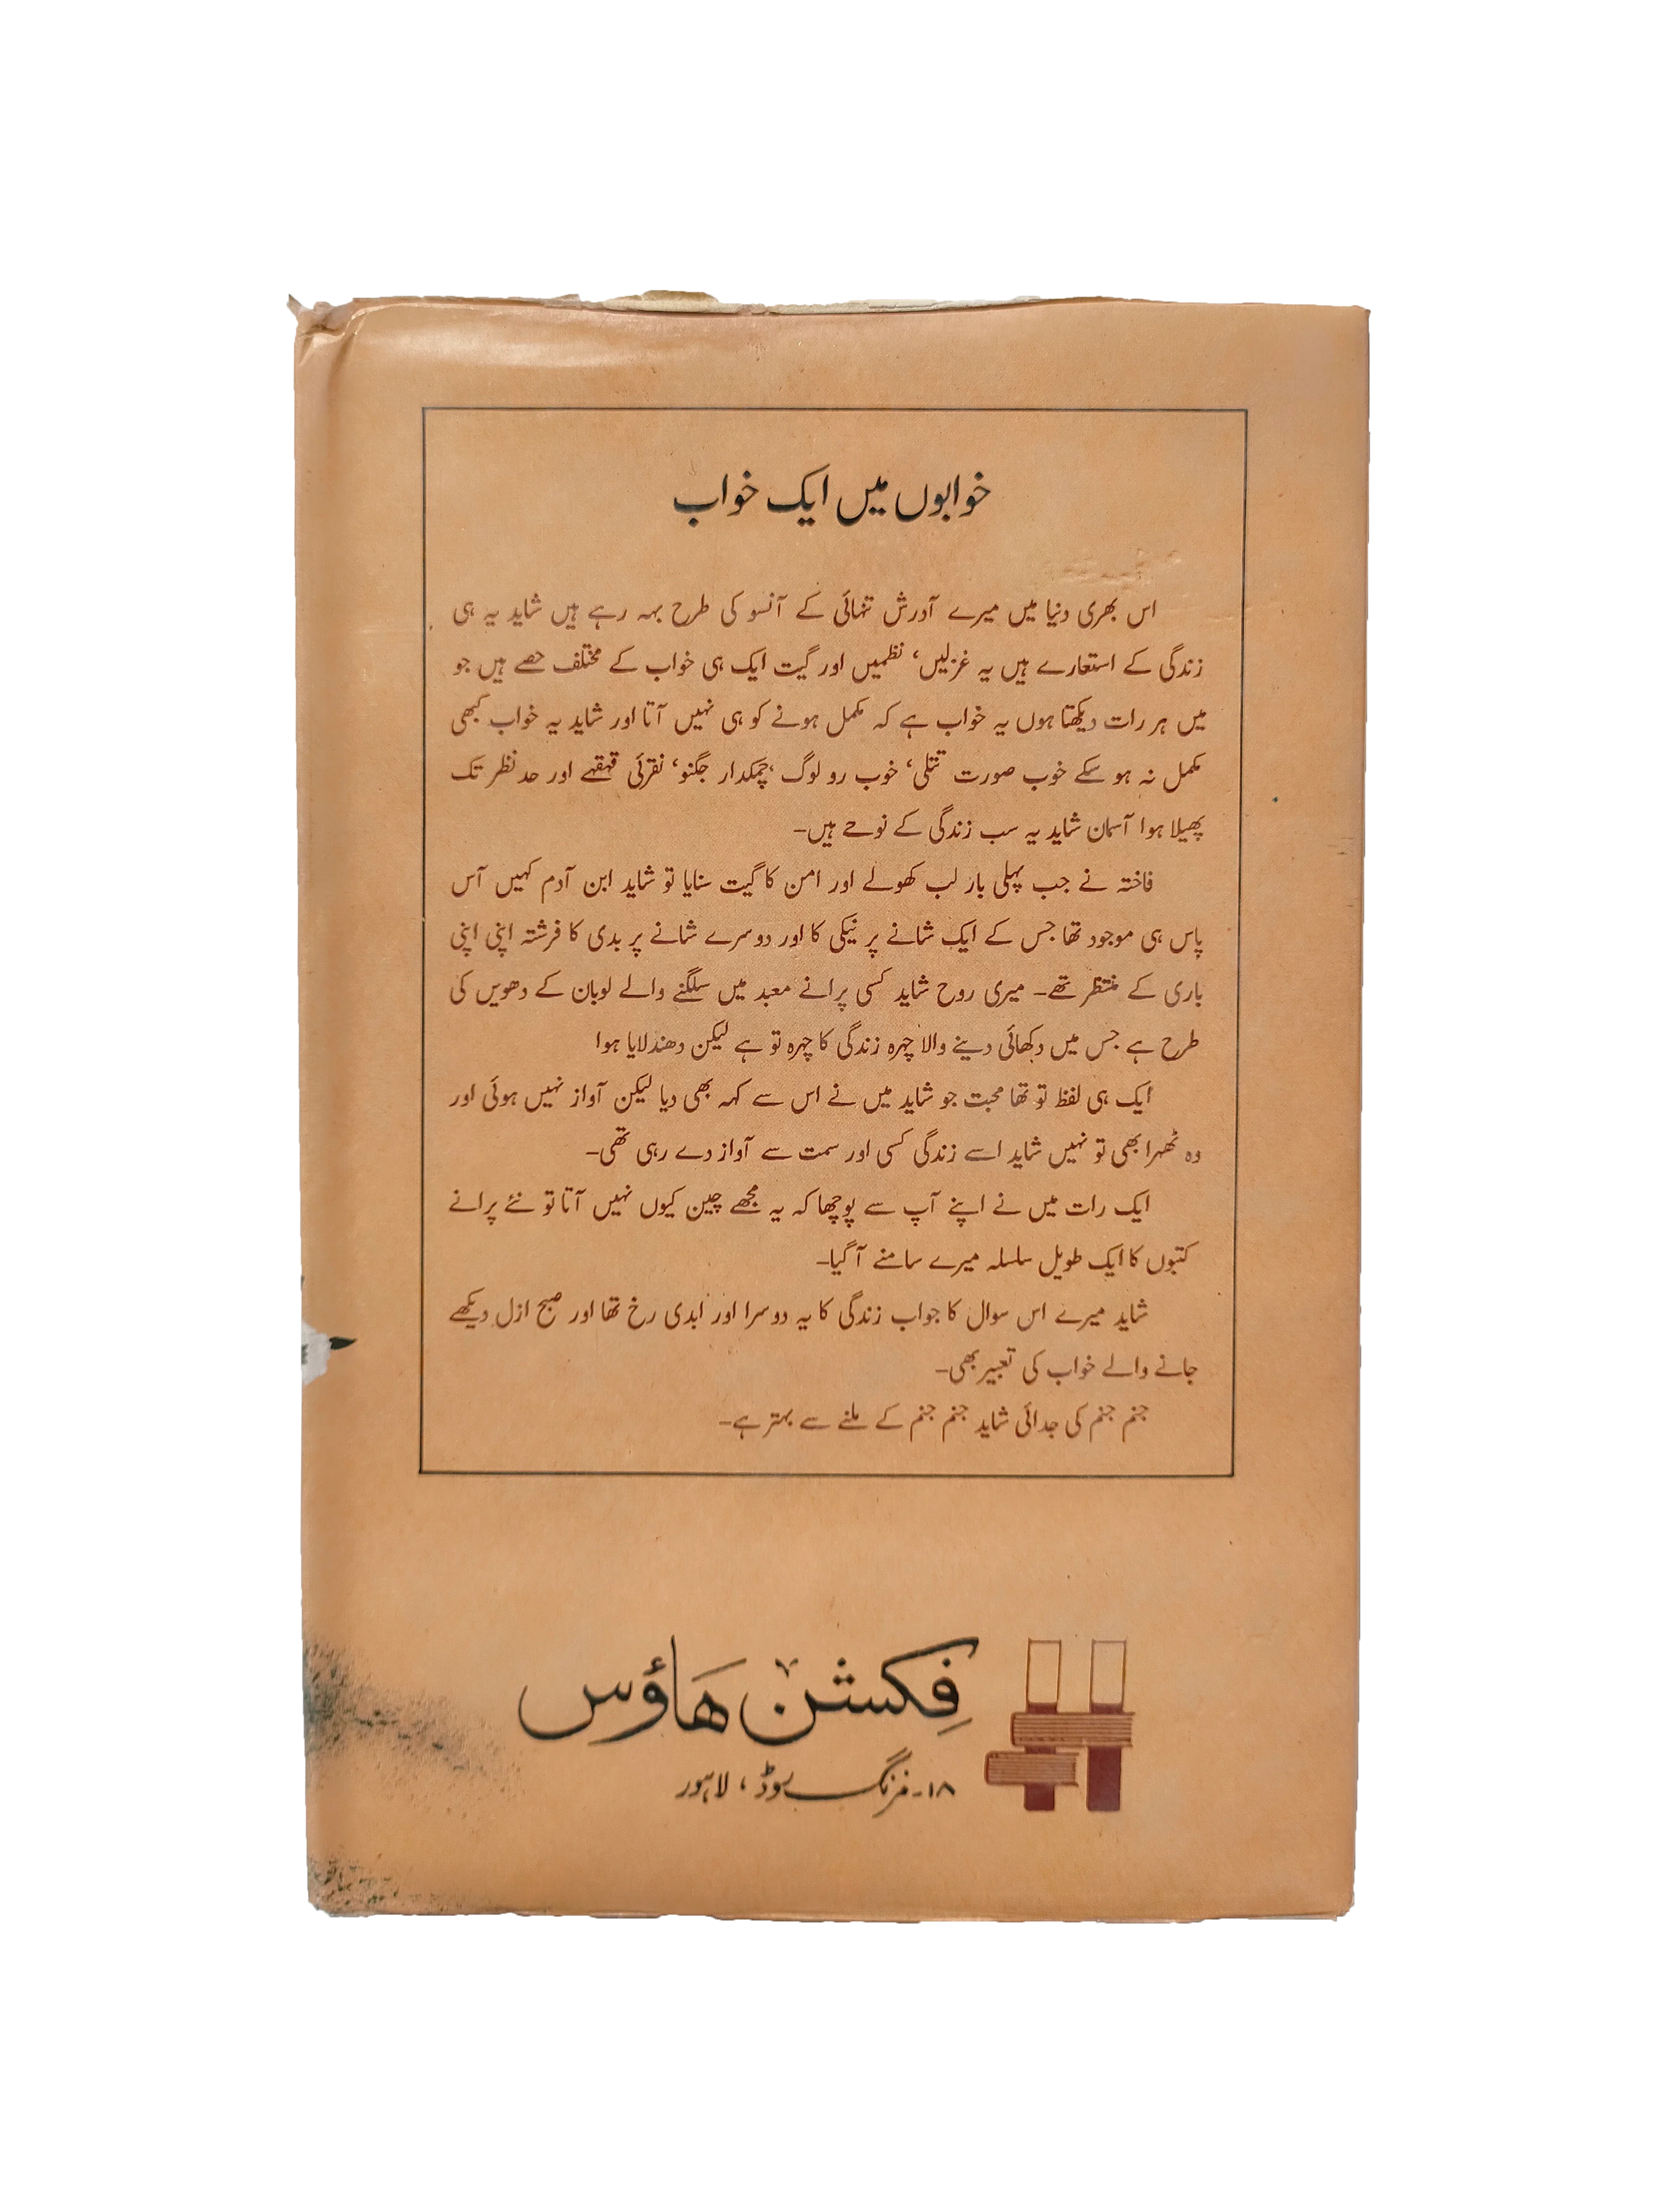 خوابوں میں ایک خواب
اس بھری دنیا میں میرے آدرش تنہائی کے آنسو کی طرح بہہ رہے ہیں شاید یہ ہی
زندگی کے استعارے ہیں یہ غزلیں، نظمیں اور گیت ایک ہی خواب کے مختلف حصے ہیں جو
میں ہر رات دیکھتا ہوں یہ خواب ہے کہ مکمل ہونے کو ہی نہیں آتا اور شاید یہ خواب کبھی
مکمل نہ ہو سکے خوب صورت تتلی، خوب رو لوگ، چمکدار جگنو، نقرئی قہقہے اور حد نظر تک
پھیلا ہوا آسمان شاید یہ سب زندگی کے نوحے ہیں۔
فاختہ نے جب پہلی بار لب کھولے اور امن کا گیت سنایا تو شاید ابن آدم کہیں آس
پاس ہی موجود تھا جس کے ایک شانے پر نیکی کا اور دوسرے شانے پر بدی کا فرشتہ اپنی اپنی
باری کے منتظر تھے۔ میری روح شاید کسی پرانے معبد میں سلگنے والے لوبان کے دھویں کی
طرح ہے جس میں دکھائی دینے والا چہرہ زندگی کا چہرہ تو ہے لیکن دھندلایا ہوا
ایک ہی لفظ تو تھا محبت جو شاید میں نے اس سے کہہ بھی دیا لیکن آواز نہیں ہوئی اور
وہ ٹھہرا بھی تو نہیں شاید اسے زندگی کسی اور سمت سے آواز دے رہی تھی۔
ایک رات میں نے اپنے آپ سے پوچھا کہ یہ مجھے چین کیوں نہیں آتا تو نئے پرانے
کتبوں کا ایک طویل سلسلہ میرے سامنے آ گیا۔
شاید میرے اس سوال کا جواب زندگی کا یہ دوسرا اور ابدی رخ تھا اور صبح ازل دیکھے
جانے والے خواب کی تعبیر بھی۔
جنم جنم کی جدائی شاید جنم جنم کے ملنے سے بہتر ہے۔
فِکشن ہَاؤس
۱۸۔مزنگ روڈ، لاہور